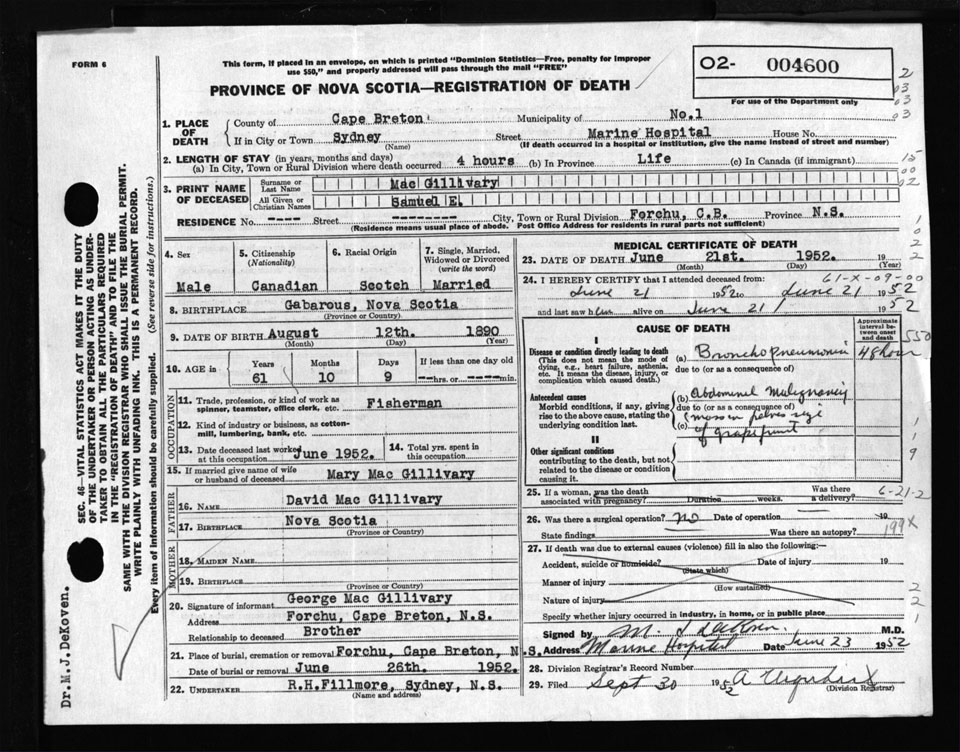 FORM 6
This form, if placed in an envelope, on which is printed "Dominion Statistics—Free, penalty for improper
use $50," and properly addressed will pass through the mail "FREE"
O2- 004600
For use of the Department only
PROVINCE OF NOVA SCOTIA—REGISTRATION OF DEATH
2
03
03
03
1. PLACE OF DEATH
County of Cape Breton Municipality of No.1
If in City or Town Sydney Street Marine Hospital House No.
(Name) (If death occurred in a hospital or institution, give the name instead of street and number)
2. LENGTH OF STAY (in years, months and days)
(a) In City, Town or Rural Division where death occurred 4 hours (b) In Province Life (c) In Canada (if immigrant)
15
00
02
3. PRINT NAME OF DECEASED
Surname or Last Name Mac Gillivary
All Given or Christian Names Samuel E.
RESIDENCE No. ---- Street -------- City, Town or Rural Division Forchu, C.B. Province N.S.
(Residence means usual place of abode. Post Office Address for residents in rural parts not sufficient)
4. Sex Male
5. Citizenship (Nationality) Canadian
6. Racial Origin Scotch
7. Single, Married, Widowed or Divorced (write the word) Married
8. BIRTHPLACE Gabarous, Nova Scotia
(Province or Country)
9. DATE OF BIRTH August 12th. 1890
(Month) (Day) (Year)
10. AGE in Years 61 Months 10 Days 9 If less than one day old --hrs. or ----min.
OCCUPATION
11. Trade, profession, or kind of work as spinner, teamster, office clerk, etc. Fisherman
12. Kind of industry or business, as cotton-mill, lumbering, bank, etc.
13. Date deceased last worked at this occupation June 1952.
14. Total yrs. spent in this occupation
15. If married give name of wife or husband of deceased Mary Mac Gillivary
FATHER
16. Name David Mac Gillivary
17. Birthplace Nova Scotia
(Province or Country)
MOTHER
18. Maiden Name
19. Birthplace
(Province or Country)
20. Signature of informant George Mac Gillivary
Address Forchu, Cape Breton, N.S.
Relationship to deceased Brother
21. Place of burial, cremation or removal Forchu, Cape Breton, N.S.
Date of burial or removal June 26th. 1952.
22. UNDERTAKER R.H.Fillmore, Sydney, N.S.
(Name and address)
MEDICAL CERTIFICATE OF DEATH
23. DATE OF DEATH June 21st. 1952. 19
(Month) (Day) (Year)
61-X-09-00
24. I HEREBY CERTIFY that I attended deceased from:
June 21 1952 to June 21 1952
and last saw him alive on June 21 1952
CAUSE OF DEATH
Approximate interval between onset and death
550
I
Disease or condition directly leading to death
(This does not mean the mode of dying, e.g., heart failure, asthenia, etc. It means the disease, injury, or complication which caused death.)
(a) Bronchopneumonia 48 hour
due to (or as a consequence of)
Antecedent causes
Morbid conditions, if any, giving rise to the above cause, stating the underlying condition last.
(b) Abdominal Malignancy
due to (or as a consequence of)
(c) (mass in pelvis size
of grapefruit
II
Other significant conditions
contributing to the death, but not related to the disease or condition causing it.
1
1
9
25. If a woman, was the death associated with pregnancy? Duration weeks. Was there a delivery?
6-21-2
26. Was there a surgical operation? no Date of operation 19
State findings Was there an autopsy?
199X
27. If death was due to external causes (violence) fill in also the following:—
Accident, suicide or homicide? Date of injury 19
(State which)
Manner of injury
(How sustained)
Nature of injury
Specify whether injury occurred in industry, in home, or in public place
2
2
1
Signed by M.D.
Address Marine Hospital Date June 23 1952
28. Division Registrar's Record Number
29. Filed Sept 30 1952 A Urquhart
(Division Registrar)
SEC. 46—VITAL STATISTICS ACT MAKES IT THE DUTY
OF THE UNDERTAKER OR PERSON ACTING AS UNDER-
TAKER TO OBTAIN ALL THE PARTICULARS REQUIRED
IN THE "REGISTRATION OF DEATH" AND TO FILE THE
SAME WITH THE DIVISION REGISTRAR WHO SHALL ISSUE THE BURIAL PERMIT.
WRITE PLAINLY WITH UNFADING INK. THIS IS A PERMANENT RECORD.
Every item of information should be carefully supplied. (See reverse side for instructions.)
Dr.M.J.DeKoven.